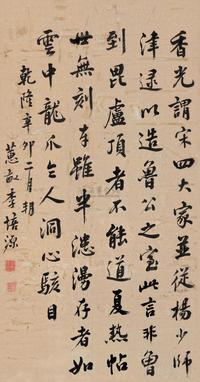 香光謂宋四大家並從楊少師
津逮以造魯公之室此言非曾
到毘盧頂者不能道夏熱帖
世無刻本雖半漶漫存者如
雲中龍爪令人洞心駭目
乾隆辛卯二月朔
蕙叔李培源